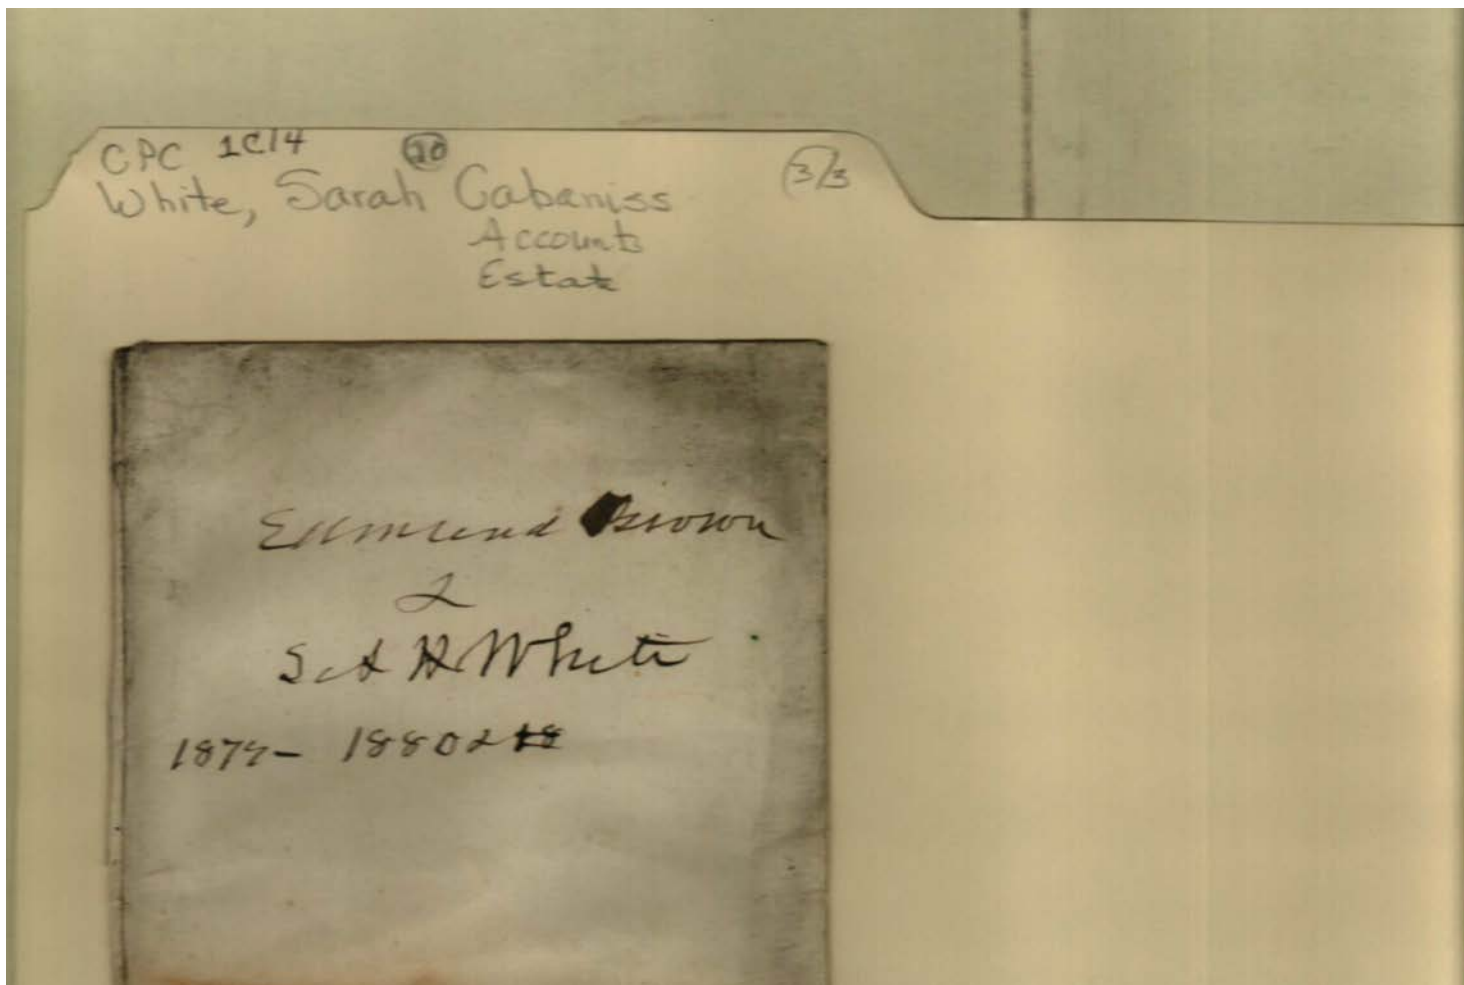 CPC 1C14 20 3/3
White, Sarah Cabaniss
Accounts
Estate
Edmund Brown
&
S. A. H. White
1879 - 1880 &